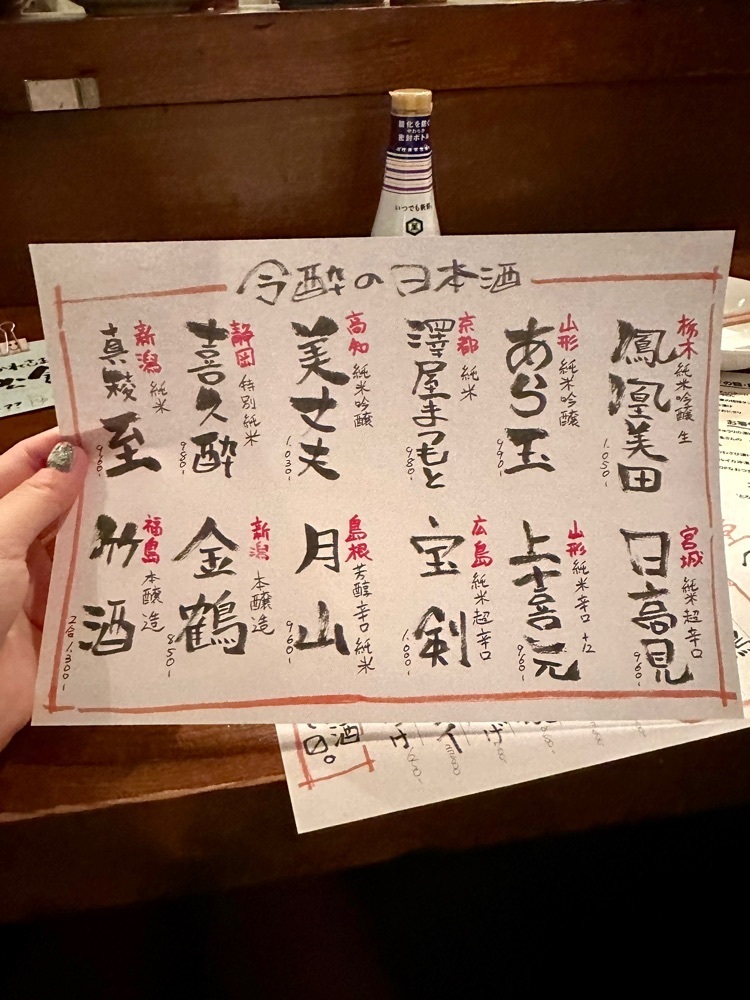 酸化を防ぐ
やわらか
密封ボトル
いつでも新鮮
今酔の日本酒
栃木 純米吟醸 生
鳳凰美田
1,050-
山形 純米吟醸
あら玉
990-
京都 純米
澤屋まつもと
980-
高知 純米吟醸
美丈夫
1,030-
静岡 特別純米
喜久酔
980-
新潟 純米
真稜 至
960-
宮城 純米超辛口
日高見
960-
山形 純米辛口 +12
上喜元
960-
広島 純米超辛口
宝剣
1,000-
島根 芳醇辛口純米
月山
960-
新潟 本醸造
金鶴
850-
福島 本醸造
竹酒
2合 1,300-